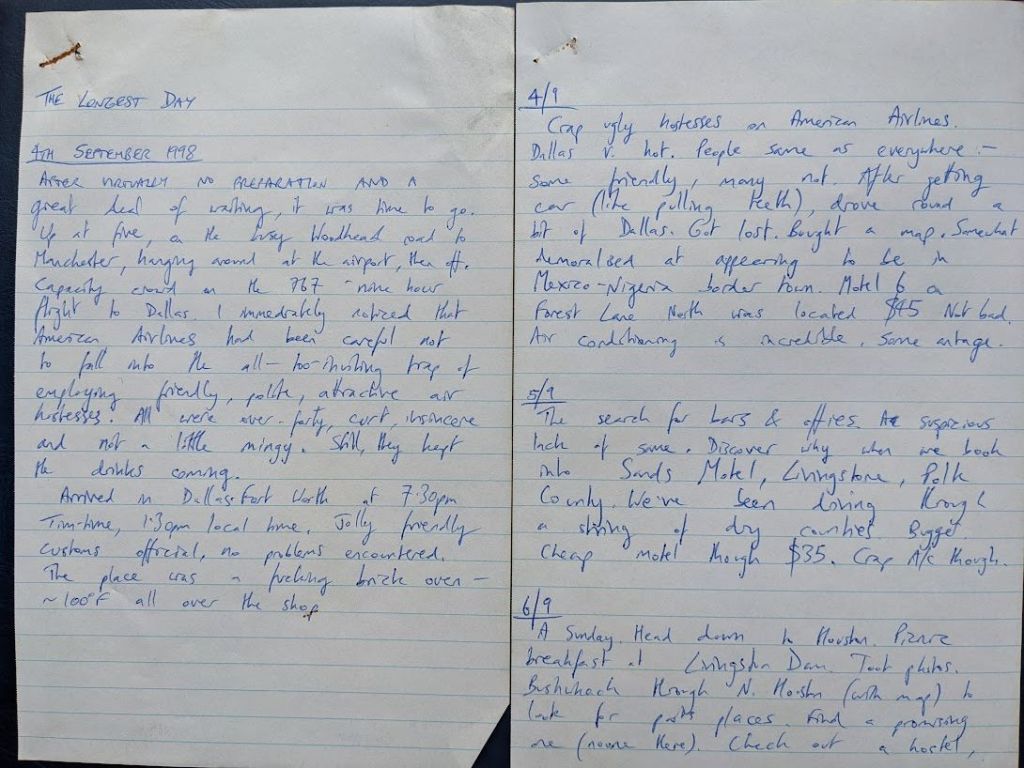 THE LONGEST DAY
4TH SEPTEMBER 1998
AFTER VIRTUALLY NO PREPARATION AND A
great deal of waiting, it was time to go.
Up at five, on the busy Woodhead road to
Manchester, hanging around at the airport, then off.
Capacity crowd on the 767 - nine hour
flight to Dallas. I immediately noticed that
American Airlines had been careful not
to fall into the all-too-inviting trap of
employing friendly, polite, attractive air
hostesses. All were over-forty, curt, insincere
and not a little mingy. Still, they kept
the drinks coming.
Arrived in Dallas-Fort Worth at 7.30pm
Tim-time, 1.30pm local time. Jolly friendly
customs official, no problems encountered.
The place was a fucking brick oven -
~100°F all over the shop
4/9
Crap ugly hostesses on American Airlines.
Dallas v. hot. People same as everywhere -
some friendly, many not. After getting
car (like pulling teeth), drove round a
bit of Dallas. Got lost. Bought a map. Somewhat
demoralised at appearing to be in
Mexico-Nigeria border town. Motel 6 on
Forest Lane North was located $45 Not bad.
Air conditioning is incredible. Same antage.
5/9
The search for bars & offies. A suspicious
lack of same. Discover why when we book
into Sands Motel, Livingstone, Polk
County. We've been driving through
a string of dry counties. Bugger.
Cheap motel though $35. Crap A/c though.
6/9
A Sunday. Head down to Houston. Picnic
breakfast at Livingston Dam. Took photos.
Bushwhack through N. Houston (with map) to
look for places. Find a promising
one (no-one there). Check out a hostel,